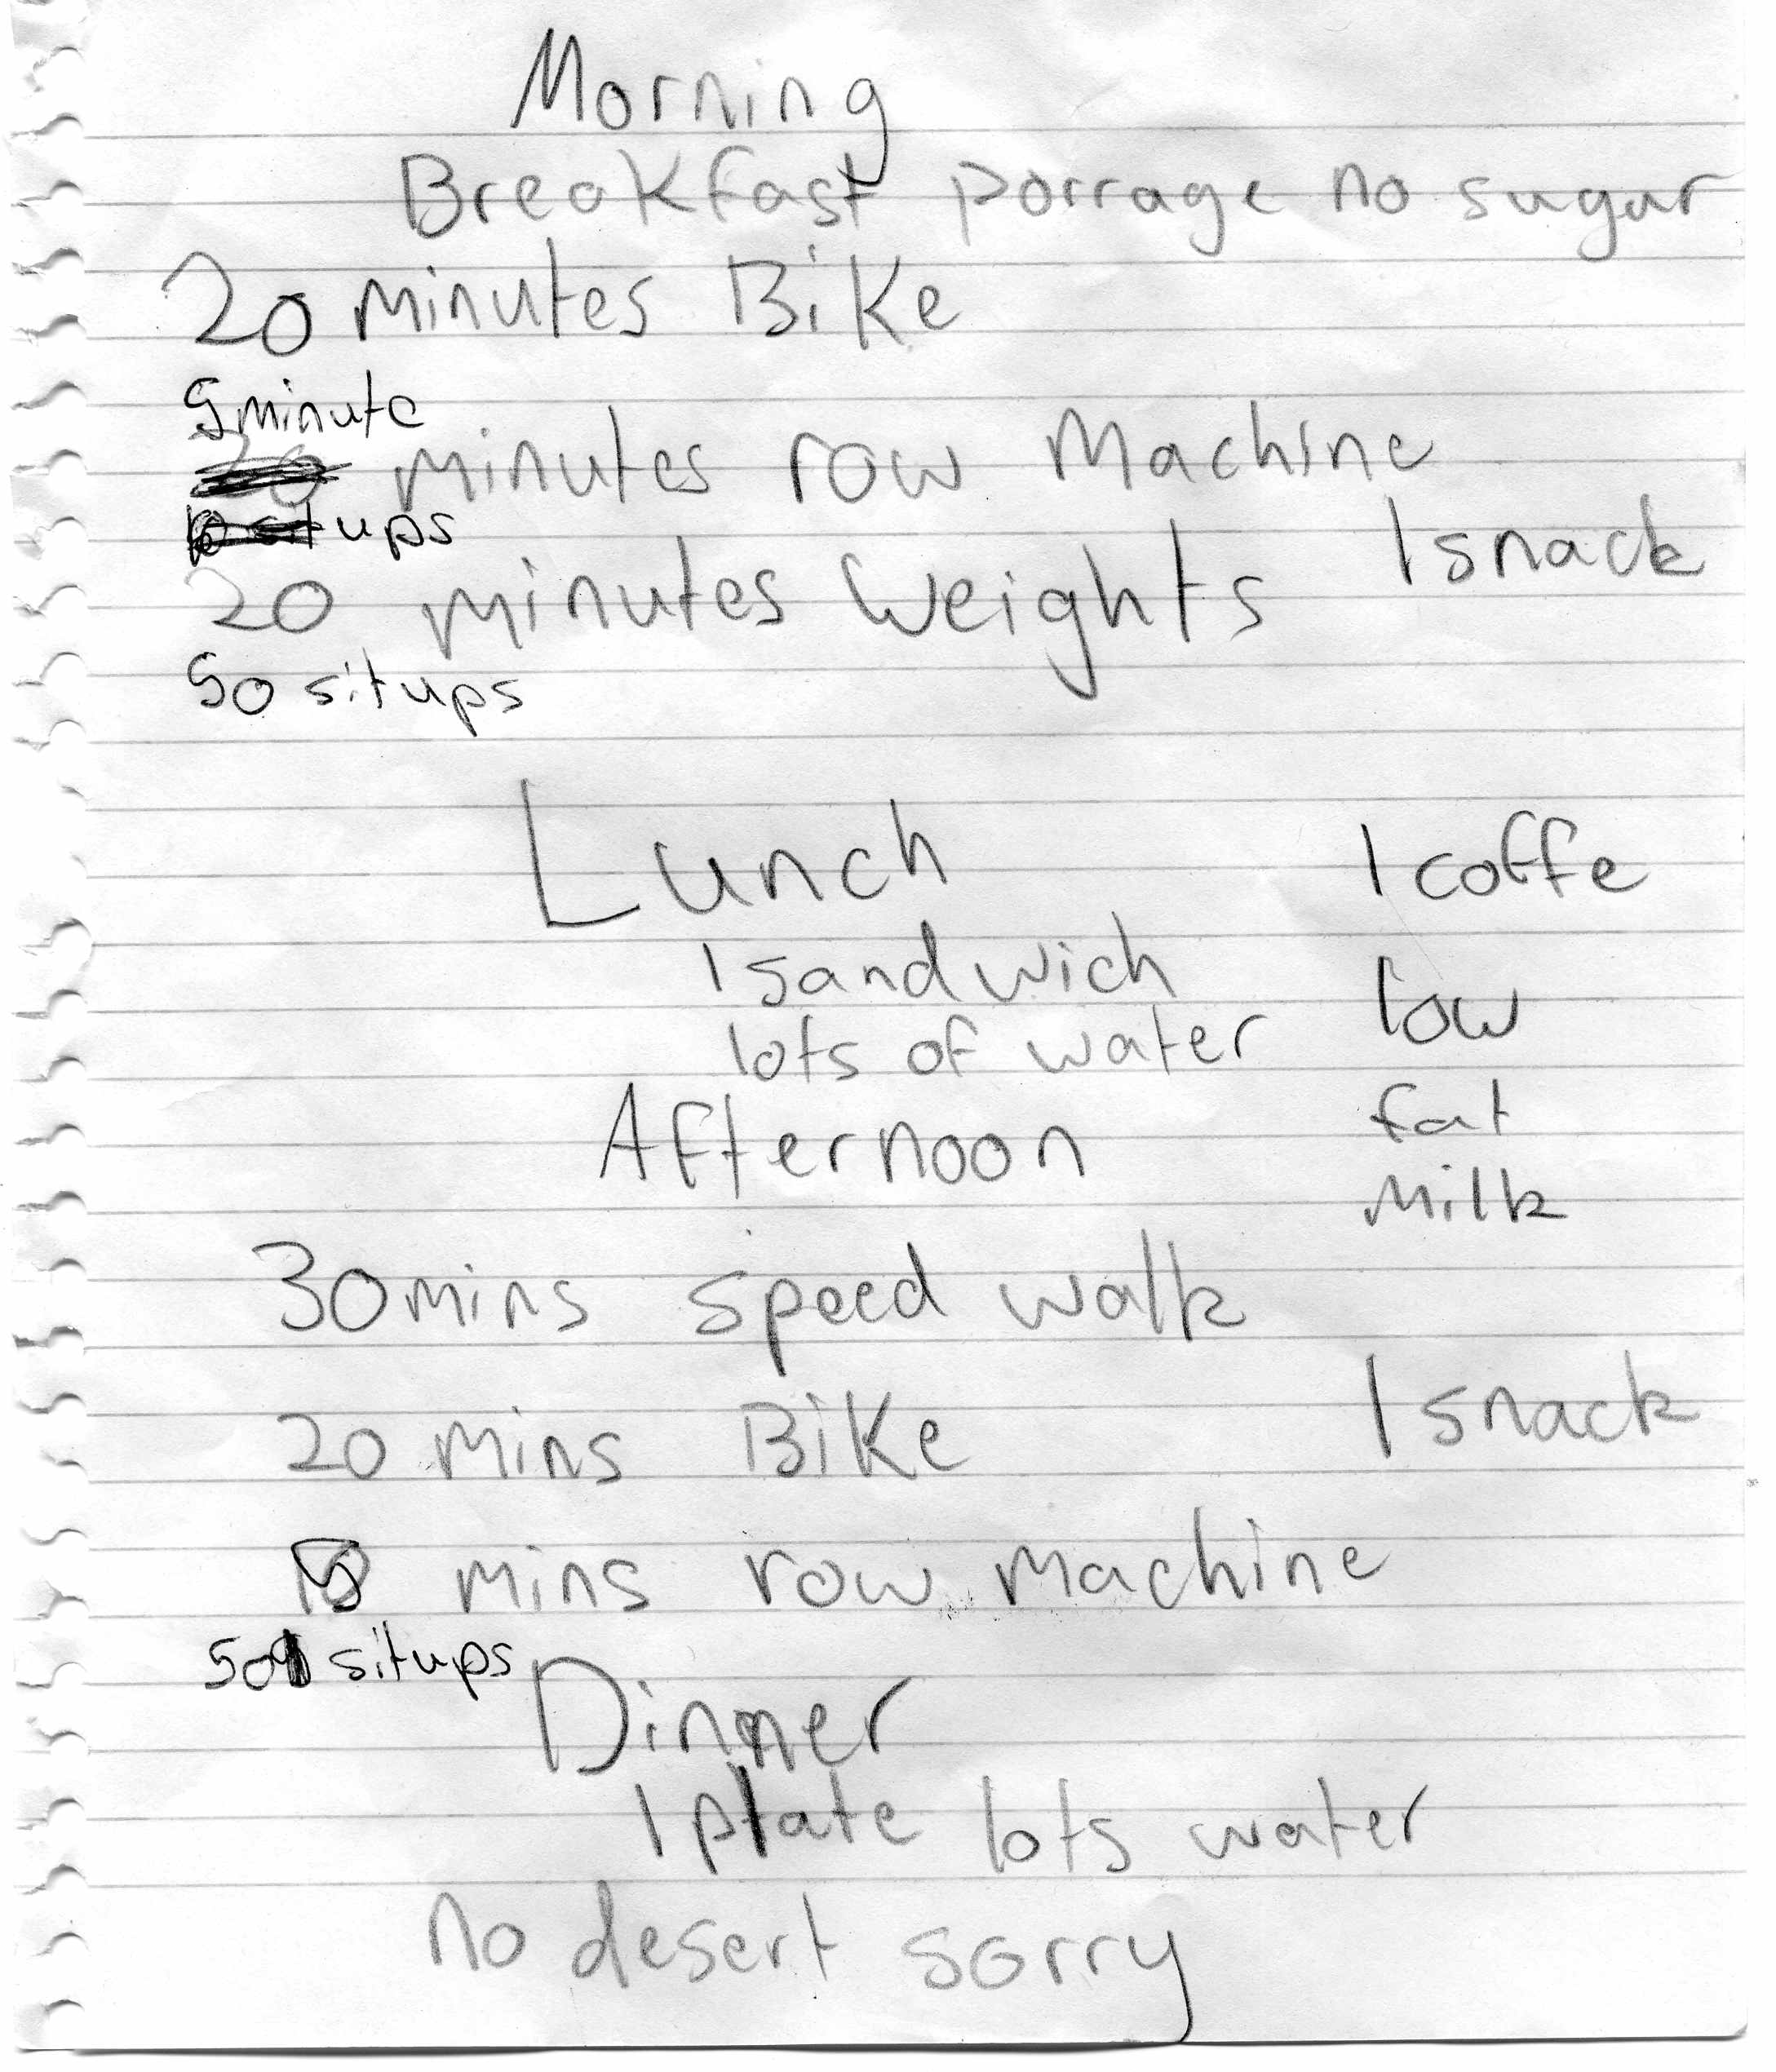 Morning
Breakfast porrage no sugar
20 minutes Bike
5 minute
minutes row Machine
ups
1 snack
20 minutes Weights
50 situps
Lunch
1 coffe
1 sandwich
low
lots of water
fat
Afternoon
Milk
30 mins speed walk
20 mins Bike
1 snack
5 mins row Machine
50 situps
Dinner
1 plate lots water
no desert sorry